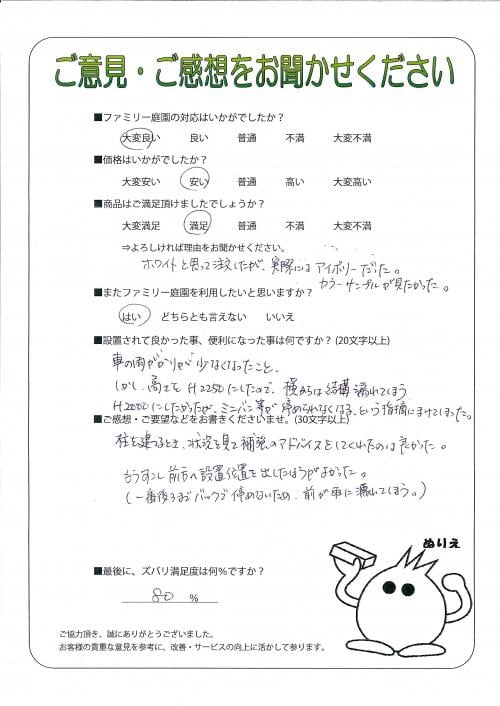 ご意見・ご感想をお聞かせください
■ファミリー庭園の対応はいかがでしたか？
大変良い 良い 普通 不満 大変不満
■価格はいかがでしたか？
大変安い 安い 普通 高い 大変高い
■商品はご満足頂けましたでしょうか？
大変満足 満足 普通 不満 大変不満
⇒よろしければ理由をお聞かせください。
ホワイトと思って注文したが、実際にはアイボリーだった。
カラーサンプルが見たかった。
■またファミリー庭園を利用したいと思いますか？
はい どちらとも言えない いいえ
■設置されて良かった事、便利になった事は何ですか？(20文字以上)
車の雨がかりが少なくなったこと、
しかし、高さをH2250にしたので、横からは結構濡れてしまう
H2000にしたかったが、ミニバン等が停められなくなる、という指摘にまけてしまった。
■ご感想・ご要望などをお書きくださいませ。(30文字以上)
柱を建てるとき、状況を見て補強のアドバイスをしてくれたのは良かった。
もうすこし前方へ設置位置を出したほうがよかった。
(一番後ろまでバックで停めないため、前が車に濡れてしまう。)
ぬりえ
■最後に、ズバリ満足度は何%ですか？
80 %
ご協力頂き、誠にありがとうございました。
お客様の貴重な意見を参考に、改善・サービスの向上に活かして参ります。